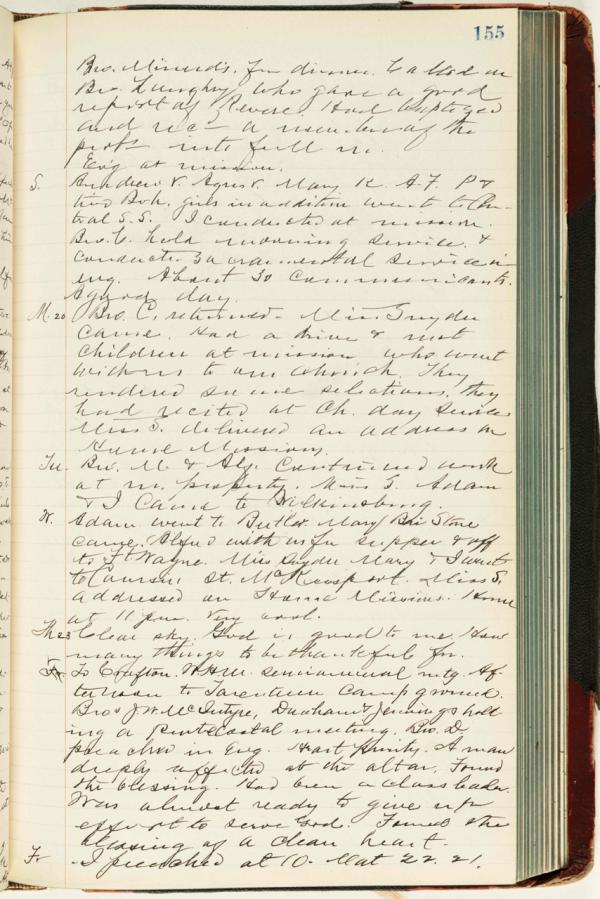 155
Bro. Minerd's. for dinner. Called on
Bro. who gave a good
report of Revere. Had baptized
and rec a member of the
prob. into full m.
Evg at mission.
S. Andrew V. Agnes V. Mary K. A.F. P &
two Boh. girls in addition went to Cen-
tral S.S. I conducted at mission.
Bro. C. held morning service, &
conducted sacramental service in
evg. About 30 communicants.
A good day.
M. 20 Bro. C. returned. Miss Snyder
came. Had a drive & met
children at mission, who went
with us to church. They
rendered some selections, they
had recited at Ch. day service
Miss S. delivered an address on
Home Missions.
Tu. Bro. M. & Alf. continued work
at m. property. Miss S. Adam
& I came to Wilkinsburg.
W. Adam went to Butler. Mary Stone
came. with us for supper & off
to Ft Wayne. Miss Snyder Mary & I went
to St. McKeesport. Miss S.
addressed on Home Missions. Home
at 11 pm. Very cool.
Th 23 Clear sky. God is good to me. How
many things to be thankful for.
Fr To Crafton. W.H.M. semiannual mtg. Af-
ternoon to Tarentum Camp ground.
Bros J.W. McIntyre, Dunham & Jennings hold-
ing a Pentecostal meeting. Bro. D.
preached in Evg. Heart Purity. A man
deeply affected at the altar. Found
the blessing. Had been a class leader.
Was almost ready to give up
effort to serve God. Found the
blessing of a clean heart.
Fr I preached at 10. Mat 22. 21.